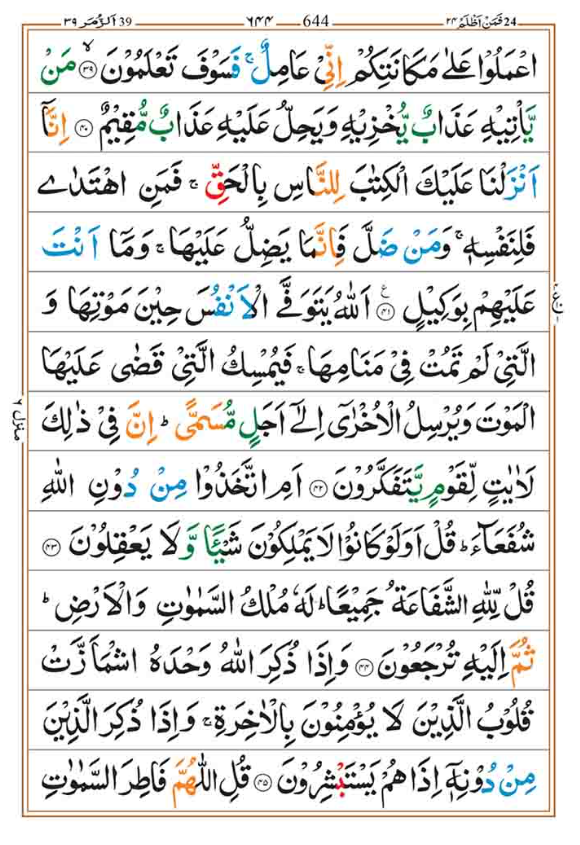 اَلزُّمَر ٣٩ 39 ــــ ٦٤٤ ــــ 644 ــــ فَمَنْ اَظْلَمُ ٢٤ 24
اعْمَلُوْا عَلٰى مَكَانَتِكُمْ اِنِّيْ عَامِلٌ ۚ فَسَوْفَ تَعْلَمُوْنَ ﴿٣٩﴾ۙ مَنْ
يَّاْتِيْهِ عَذَابٌ يُّخْزِيْهِ وَيَحِلُّ عَلَيْهِ عَذَابٌ مُّقِيْمٌ ﴿٤٠﴾ اِنَّاۤ
اَنْزَلْنَا عَلَيْكَ الْكِتٰبَ لِلنَّاسِ بِالْحَقِّ ۚ فَمَنِ اهْتَدٰى
فَلِنَفْسِهٖ ۚ وَمَنْ ضَلَّ فَاِنَّمَا يَضِلُّ عَلَيْهَا ۚ وَمَاۤ اَنْتَ
عَلَيْهِمْ بِوَكِيْلٍ ﴿٤١﴾ اَللّٰهُ يَتَوَفَّى الْاَنْفُسَ حِيْنَ مَوْتِهَا وَ
الَّتِيْ لَمْ تَمُتْ فِيْ مَنَامِهَا ۚ فَيُمْسِكُ الَّتِيْ قَضٰى عَلَيْهَا
الْمَوْتَ وَيُرْسِلُ الْاُخْرٰۤى اِلٰۤى اَجَلٍ مُّسَمًّى ؕ اِنَّ فِيْ ذٰلِكَ
لَاٰيٰتٍ لِّقَوْمٍ يَّتَفَكَّرُوْنَ ﴿٤٢﴾ اَمِ اتَّخَذُوْا مِنْ دُوْنِ اللّٰهِ
شُفَعَآءَ ؕ قُلْ اَوَلَوْ كَانُوْا لَا يَمْلِكُوْنَ شَيْـًٔا وَّلَا يَعْقِلُوْنَ ﴿٤٣﴾
قُلْ لِّلّٰهِ الشَّفَاعَةُ جَمِيْعًا ؕ لَهٗ مُلْكُ السَّمٰوٰتِ وَالْاَرْضِ ؕ
ثُمَّ اِلَيْهِ تُرْجَعُوْنَ ﴿٤٤﴾ وَاِذَا ذُكِرَ اللّٰهُ وَحْدَهُ اشْمَاَزَّتْ
قُلُوْبُ الَّذِيْنَ لَا يُؤْمِنُوْنَ بِالْاٰخِرَةِ ۚ وَاِذَا ذُكِرَ الَّذِيْنَ
مِنْ دُوْنِهٖۤ اِذَا هُمْ يَسْتَبْشِرُوْنَ ﴿٤٥﴾ قُلِ اللّٰهُمَّ فَاطِرَ السَّمٰوٰتِ
منزل ٦